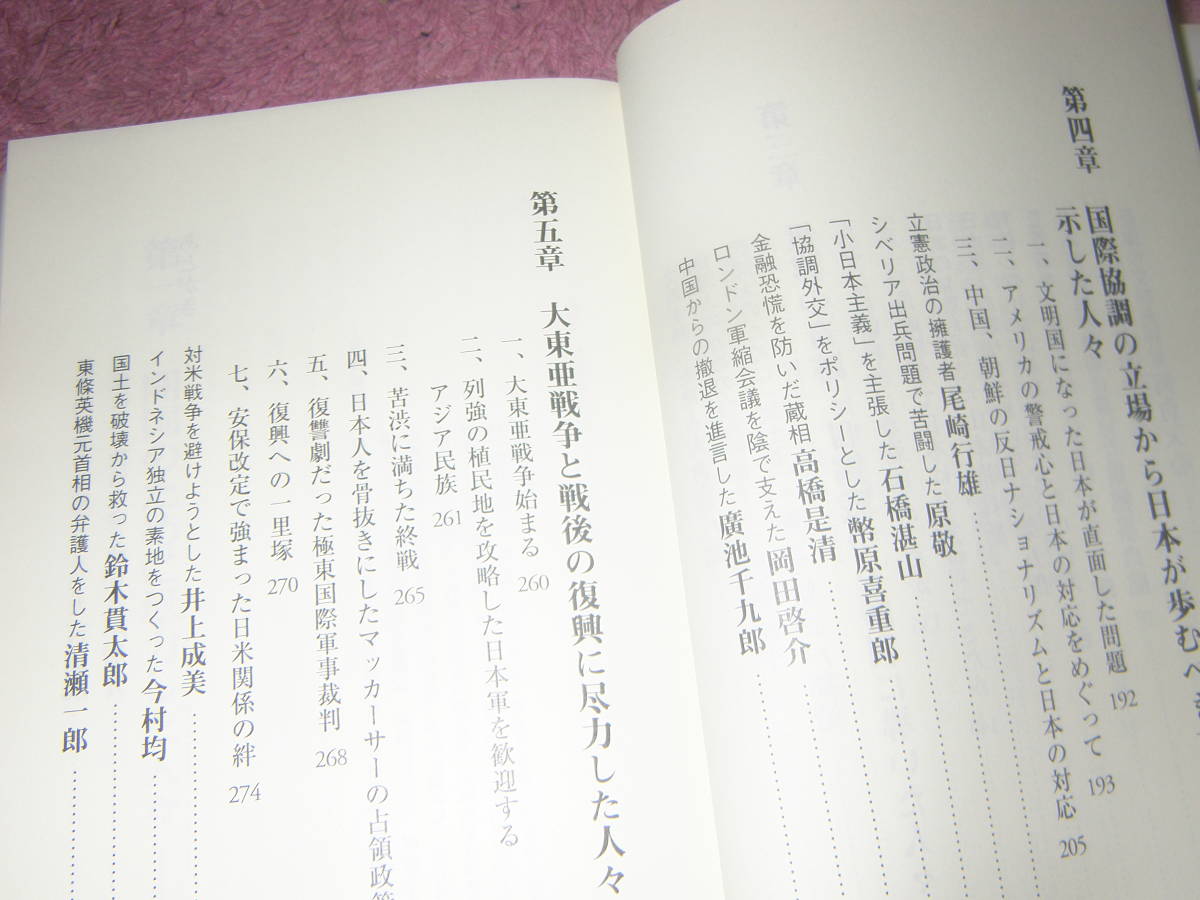 第四章 国際協調の立場から日本が歩むべ
示した人々
一、文明国になった日本が直面した問題 192
二、アメリカの警戒心と日本の対応をめぐって 193
三、中国、朝鮮の反日ナショナリズムと日本の対応 205
立憲政治の擁護者 尾崎行雄
シベリア出兵問題で苦闘した 原敬
「小日本主義」を主張した 石橋湛山
「協調外交」をポリシーとした 幣原喜重郎
金融恐慌を防いだ蔵相 高橋是清
ロンドン軍縮会議を陰で支えた 岡田啓介
中国からの撤退を進言した 廣池千九郎
第五章 大東亜戦争と戦後の復興に尽力した人々
一、大東亜戦争始まる 260
二、列強の植民地を攻略した日本軍を歓迎する
アジア民族 261
三、苦渋に満ちた終戦 265
四、日本人を骨抜きにしたマッカーサーの占領政策
五、復讐劇だった極東国際軍事裁判 268
六、復興への一里塚 270
七、安保改定で強まった日米関係の絆 274
対米戦争を避けようとした 井上成美
インドネシア独立の素地をつくった 今村均
国土を破壊から救った 鈴木貫太郎
東條英機元首相の弁護人をした 清瀬一郎